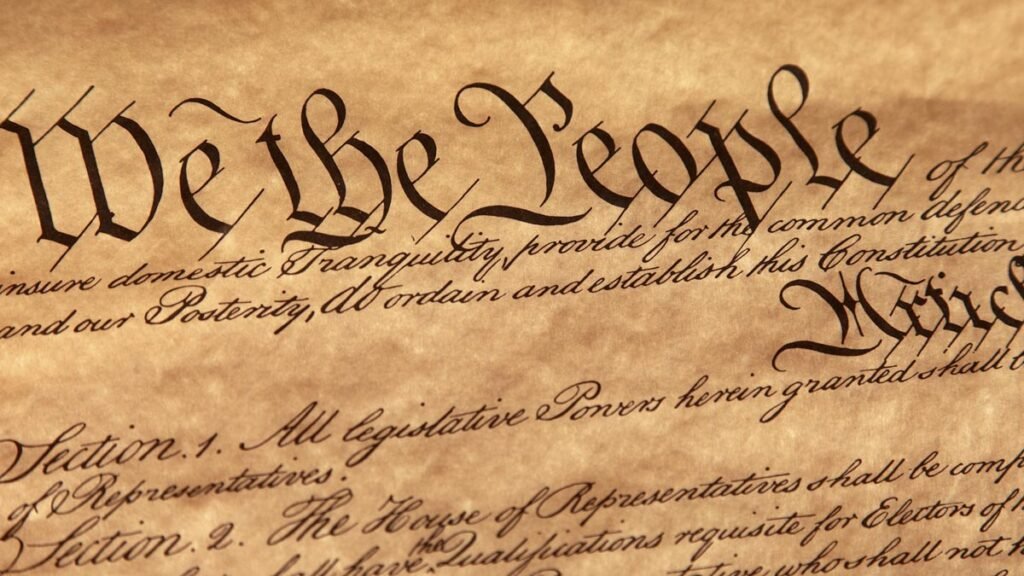 We the People of th
insure domestic Tranquility, provide for the common defenc
and our Posterity, do ordain and establish this Constitution
Articl
Section. 1. All legislative Powers herein granted shall b
of Representatives.
Section. 2. The House of Representatives shall be comp
shall have the Qualifications requisite for Electors of
who shall not